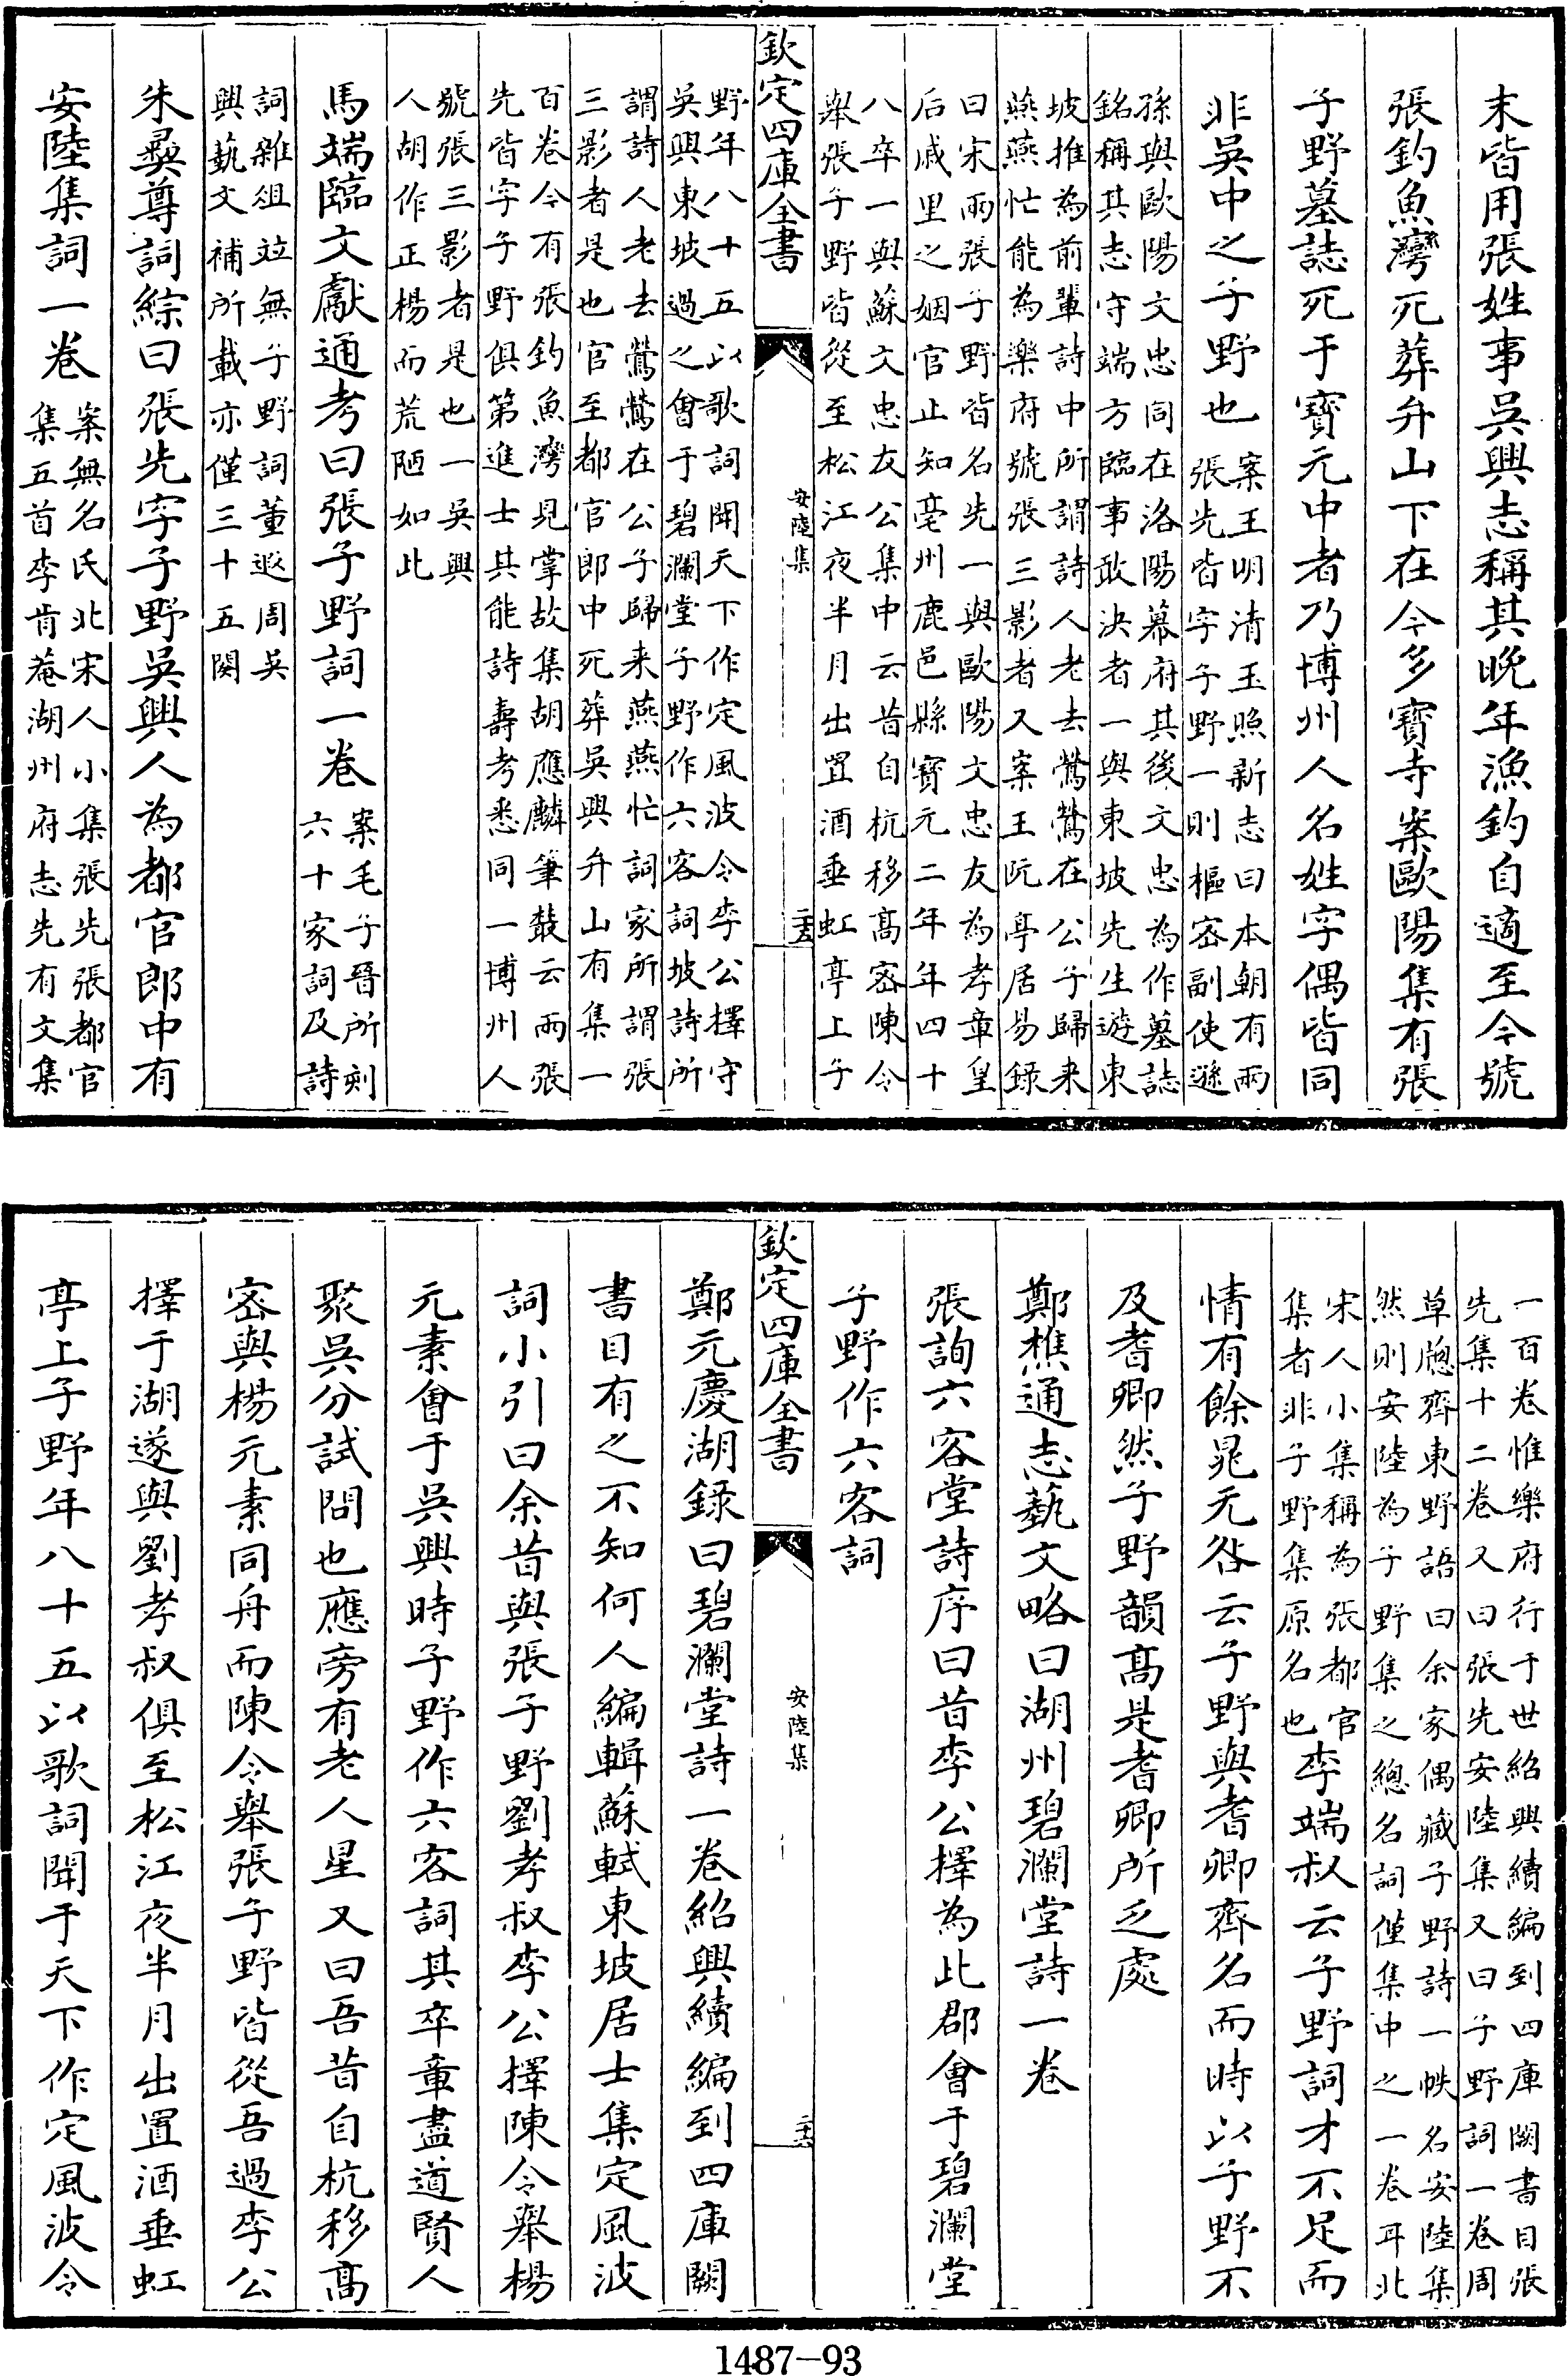 末皆用張姓事吳興志稱其晚年漁釣自適至今號
張釣魚灣死葬弁山下在今多寶寺案歐陽集有張
子野墓誌死于寶元中者乃博州人名姓字偶皆同
非吳中之子野也
案王明清玉照新志曰本朝有兩
張先皆字子野一則樞密副使遜
孫與歐陽文忠同在洛陽幕府其後文忠為作墓誌
銘稱其志守端方臨事敢決者一與東坡先生遊東
坡推為前輩詩中所謂詩人老去鶯鶯在公子歸来
燕燕忙能為樂府號張三影者又案王阮亭居易錄
曰宋兩張子野皆名先一與歐陽文忠友為孝章皇
后戚里之姻官止知亳州鹿邑縣寶元二年年四十
八卒一與蘇文忠友公集中云昔自杭移髙密陳令
舉張子野皆從至松江夜半月出置酒垂虹亭上子
欽定四庫全書
安陸集
二十五
野年八十五以歌詞聞天下作定風波令李公擇守
吳興東坡過之會于碧瀾堂子野作六客詞坡詩所
謂詩人老去鶯鶯在公子歸来燕燕忙詞家所謂張
三影者是也官至都官郎中死葬吳興弁山有集一
百卷今有張釣魚灣見掌故集胡應麟筆叢云兩張
先皆字子野俱第進士其能詩壽考悉同一博州人
號張三影者是也一吳興
人胡作正楊而荒陋如此
馬端臨文獻通考曰張子野詞一卷
案毛子晉所刻
六十家詞及詩
詞雜俎竝無子野詞董遐周吳
興藝文補所載亦僅三十五闋
朱彞尊詞綜曰張先字子野吳興人為都官郎中有
安陸集詞一卷
案無名氏北宋人小集張先張都官
集五首李肯菴湖州府志先有文集
一百卷惟樂府行于世紹興續編到四庫闕書目張
先集十二卷又曰張先安陸集又曰子野詞一卷周
草牕齊東野語曰余家偶藏子野詩一帙名安陸集
然則安陸為子野集之總名詞僅集中之一卷耳北
宋人小集稱為張都官
集者非子野集原名也
李端叔云子野詞才不足而
情有餘晁无咎云子野與耆卿齊名而時以子野不
及耆卿然子野韻髙是耆卿所乏處
鄭樵通志藝文略曰湖州碧瀾堂詩一卷
張詢六客堂詩序曰昔李公擇為此郡會于碧瀾堂
子野作六客詞
欽定四庫全書
安陸集
二十六
鄭元慶湖錄曰碧瀾堂詩一卷紹興續編到四庫闕
書目有之不知何人編輯蘇軾東坡居士集定風波
詞小引曰余昔與張子野劉孝叔李公擇陳令舉楊
元素會于吳興時子野作六客詞其卒章盡道賢人
聚吳分試問也應旁有老人星又曰吾昔自杭移髙
密與楊元素同舟而陳令舉張子野皆從吾過李公
擇于湖遂與劉孝叔俱至松江夜半月出置酒垂虹
亭上子野年八十五以歌詞聞于天下作定風波令
1487-93